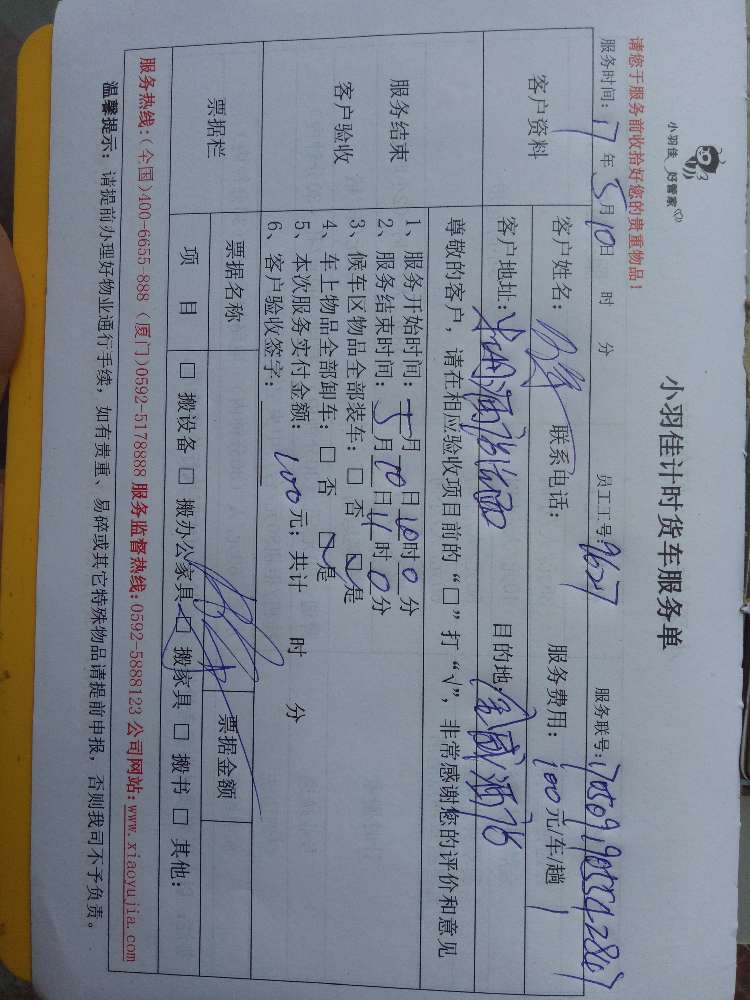 小羽佳 好管家
小羽佳计时货车服务单
请您于服务前收拾好您的贵重物品！
服务时间：17年5月10日 时 分 员工工号：9627 服务联号：
客户资料 客户姓名： 联系电话： 服务费用：100元/车/趟
客户地址： 目的地：
尊敬的客户，请在相应验收项目前的“□”打“√”，非常感谢您的评价和意见
服务结束
客户验收
1、服务开始时间： 月 日10时0分
2、服务结束时间：5月10日11时0分
3、候车区物品全部装车：□ 否 ☑ 是
4、车上物品全部卸车：□ 否 ☑ 是
5、本次服务实付金额：100元；共计 时 分
6、客户验收签字：
票据栏 票据名称 票据金额
项 目 □ 搬设备 □ 搬办公家具 □ 搬家具 □ 搬书 □ 其他：
服务热线：(全国)400-6655-888 (厦门)0592-5178888 服务监督热线：0592-5888123 公司网站：www.xiaoyujia.com
温馨提示：请提前办理好物业通行手续，如有贵重、易碎或其它特殊物品请提前申报，否则我司不予负责。